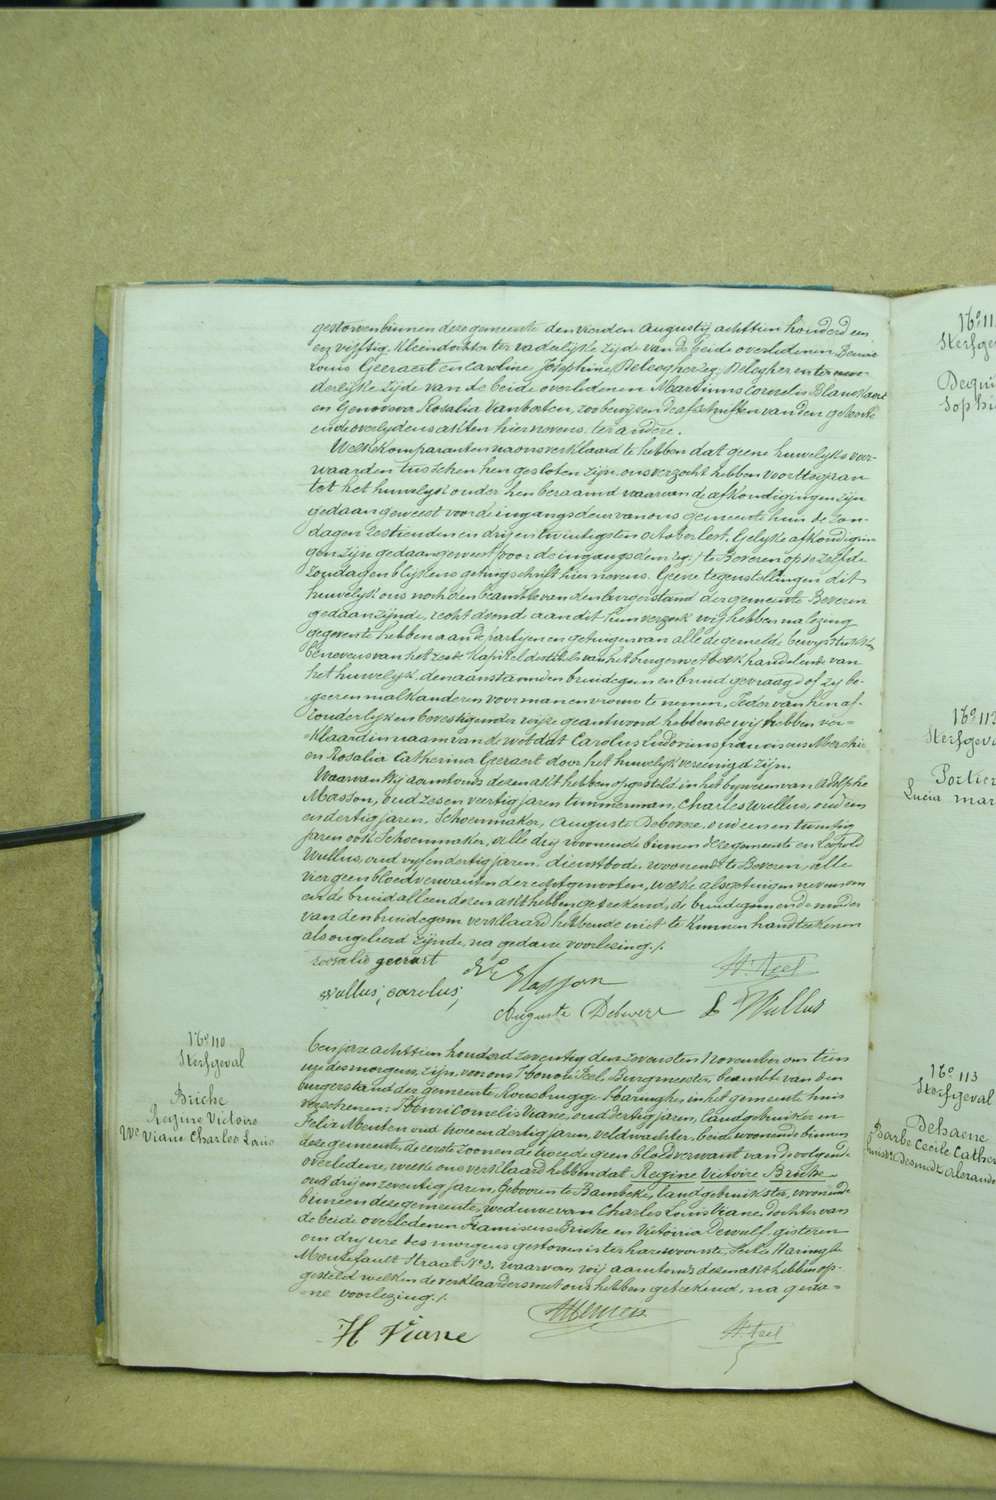 gestorven binnen deze gemeente den vierden Augustij achttien honderd een
en vijftig. Kleindochter ter vaderlijke zijde van de beide overledenen
Louis Geeraert en Caroline Josephine Deleogherzeg: Delegher en ter moe-
derlijke zijde van de beide overledenen Martinus Cornelis Blanckaert
en Genoveva Rosalia Vanbesten, zoo bewijzen de afschriften van den geboorte
en de overlydens akten hiernevens. ter andere.
Welke komparanten na ons verklaard te hebben dat geene huwelijks voor-
waarden tusschen hen gesloten zijn, ons verzocht hebben voorttegaan
tot het huwelijk onder hen beraamd waarvan de afkondigingen zijn
gedaan geweest voor de ingangsdeur van ons gemeente huis de zon-
dagen zestienden en drij en twintigsten october lest. Gelijke afkondigin-
gen zijn gedaan geweest (voor de ingangsdeur zeg:) te Beveren op de zelfde
zondagen blijkens getuigschrift hier nevens. Geene tegenstellingen dit
huwelijk ons noch den beambte van den burgerstand der gemeente Beveren
gedaan zijnde, recht doende aan dit hun verzoek wij hebben na lezing
gegeven te hebben aan de partijen en getuigen van alle de gemelde bewijsstukken
benevens van het zesde kapittel des titels van het burgerwetboek handelende van
het huwelijk, den aanstaanden bruidegom en bruid gevraagd of zij be-
geeren malkanderen voor man en vrouw te nemen, Ieder van hen af-
zonderlijk en bevestigender wijze geantwoord hebbende wij hebben ver-
klaard in naam van de wet dat Carolus Ludovicus franciscus Merchie
en Rosalia Catherina Geraert door het huwelijk vereenigd zijn.
Waarvan Wij aanstonds dezen akt hebben opgesteld in het bijwezen van Adolphe
Masson, oud zes en veertig jaren timmerman, Charles Wullus, oud een
en dertig jaren, Schoenmaker, Auguste Debevere, oud een en twintig
jaren ook Schoenmaker, alle drij woonende binnen deze gemeente en Leopold
Wullus, oud vijf en dertig jaren, dienstbode, woonende te Beveren, alle
vier geen bloedverwanten der echtgenooten, welke als getuigen nevens ons
en de bruid alleen dezen akt hebben geteekend, de bruidegom en de moeder
van den bruidegom verklaard hebbende niet te kunnen handteekenen
als ongeleerd zijnde, na gedane voorlezing./.
Rosalie geerart Masson H. Feel
Wullus, carolus, Auguste Debevere L Wullus
No 110
Sterfgeval
Briche
Regine Victoire
We Viane Charles Louis
Den jare achttien honderd zeventig den zevensten November om tien
ure des morgens, zijn voor ons Honoré Feel, Burgmeester, beambte van den
burgerstand der gemeente Rousbrugge-Haringhe, in het gemeente huis
verschenen: Henri Cornelis Viane, oud dertig jaren, landgebruiker en
Felix oud twee en dertig jaren, veldwachter, beide woonende binnen
deze gemeente, de eerste zoon en de tweede geen bloedverwant van de volgende
overledene, welke ons verklaard hebben dat Regine Victoire Briche
oud drij en zeventig jaren, geboren te Bambeke, landgebruikster, woonende
binnen deze gemeente, weduwe van Charles Louis Viane, dochter van
de beide overledenen Franciscus Briche en Victoria Dewulf. gisteren
om drij ure des morgens gestorven is ter hare woonste,
Straat No 3. waarvan wij aanstonds dezen akt hebben op-
gesteld welken de verklaarders met ons hebben geteekend, na geda-
ne voorlezing./.
H Viane H. Feel
No 11
Sterfgev
Dequi
Sophi
No 112
Sterfgeva
Portier
Lucia mar
No 113
Sterfgeval
Dehaene
Barbe Cecile Cather
huisvr. Desmidt Alexande